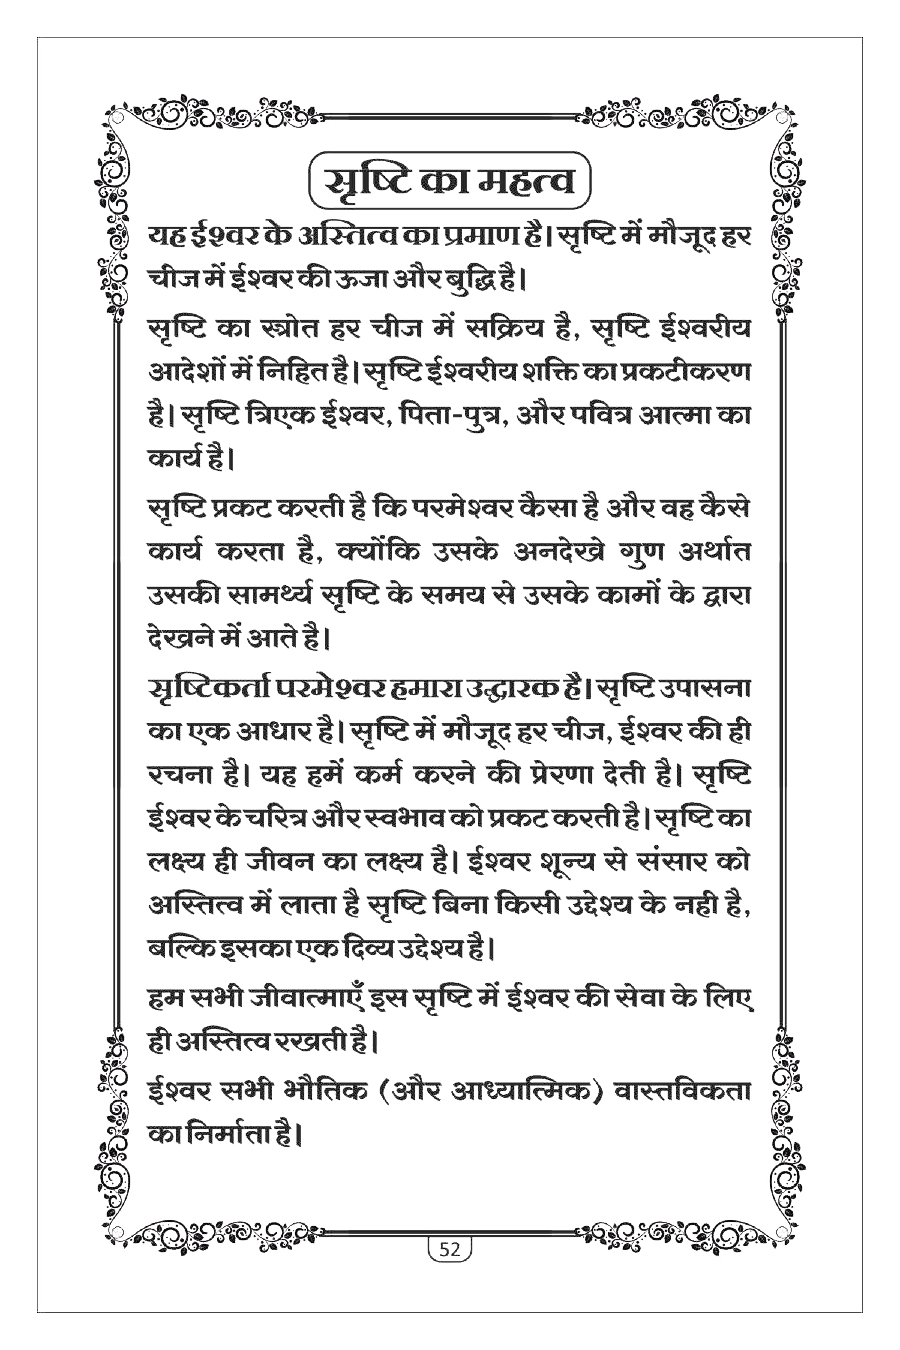 सृष्टि का महत्व
यह ईश्वर के अस्तित्व का प्रमाण है। सृष्टि में मौजूद हर
चीज में ईश्वर की ऊजा और बुद्धि है।
सृष्टि का स्त्रोत हर चीज में सक्रिय है, सृष्टि ईश्वरीय
आदेशों में निहित है। सृष्टि ईश्वरीय शक्ति का प्रकटीकरण
है। सृष्टि त्रिएक ईश्वर, पिता-पुत्र, और पवित्र आत्मा का
कार्य है।
सृष्टि प्रकट करती है कि परमेश्वर कैसा है और वह कैसे
कार्य करता है, क्योंकि उसके अनदेखे गुण अर्थात
उसकी सामर्थ्य सृष्टि के समय से उसके कामों के द्वारा
देखने में आते है।
सृष्टिकर्ता परमेश्वर हमारा उद्धारक है। सृष्टि उपासना
का एक आधार है। सृष्टि में मौजूद हर चीज, ईश्वर की ही
रचना है। यह हमें कर्म करने की प्रेरणा देती है। सृष्टि
ईश्वर के चरित्र और स्वभाव को प्रकट करती है। सृष्टि का
लक्ष्य ही जीवन का लक्ष्य है। ईश्वर शून्य से संसार को
अस्तित्व में लाता है सृष्टि बिना किसी उद्देश्य के नही है,
बल्कि इसका एक दिव्य उद्देश्य है।
हम सभी जीवात्माएँ इस सृष्टि में ईश्वर की सेवा के लिए
ही अस्तित्व रखती है।
ईश्वर सभी भौतिक (और आध्यात्मिक) वास्तविकता
का निर्माता है।
52